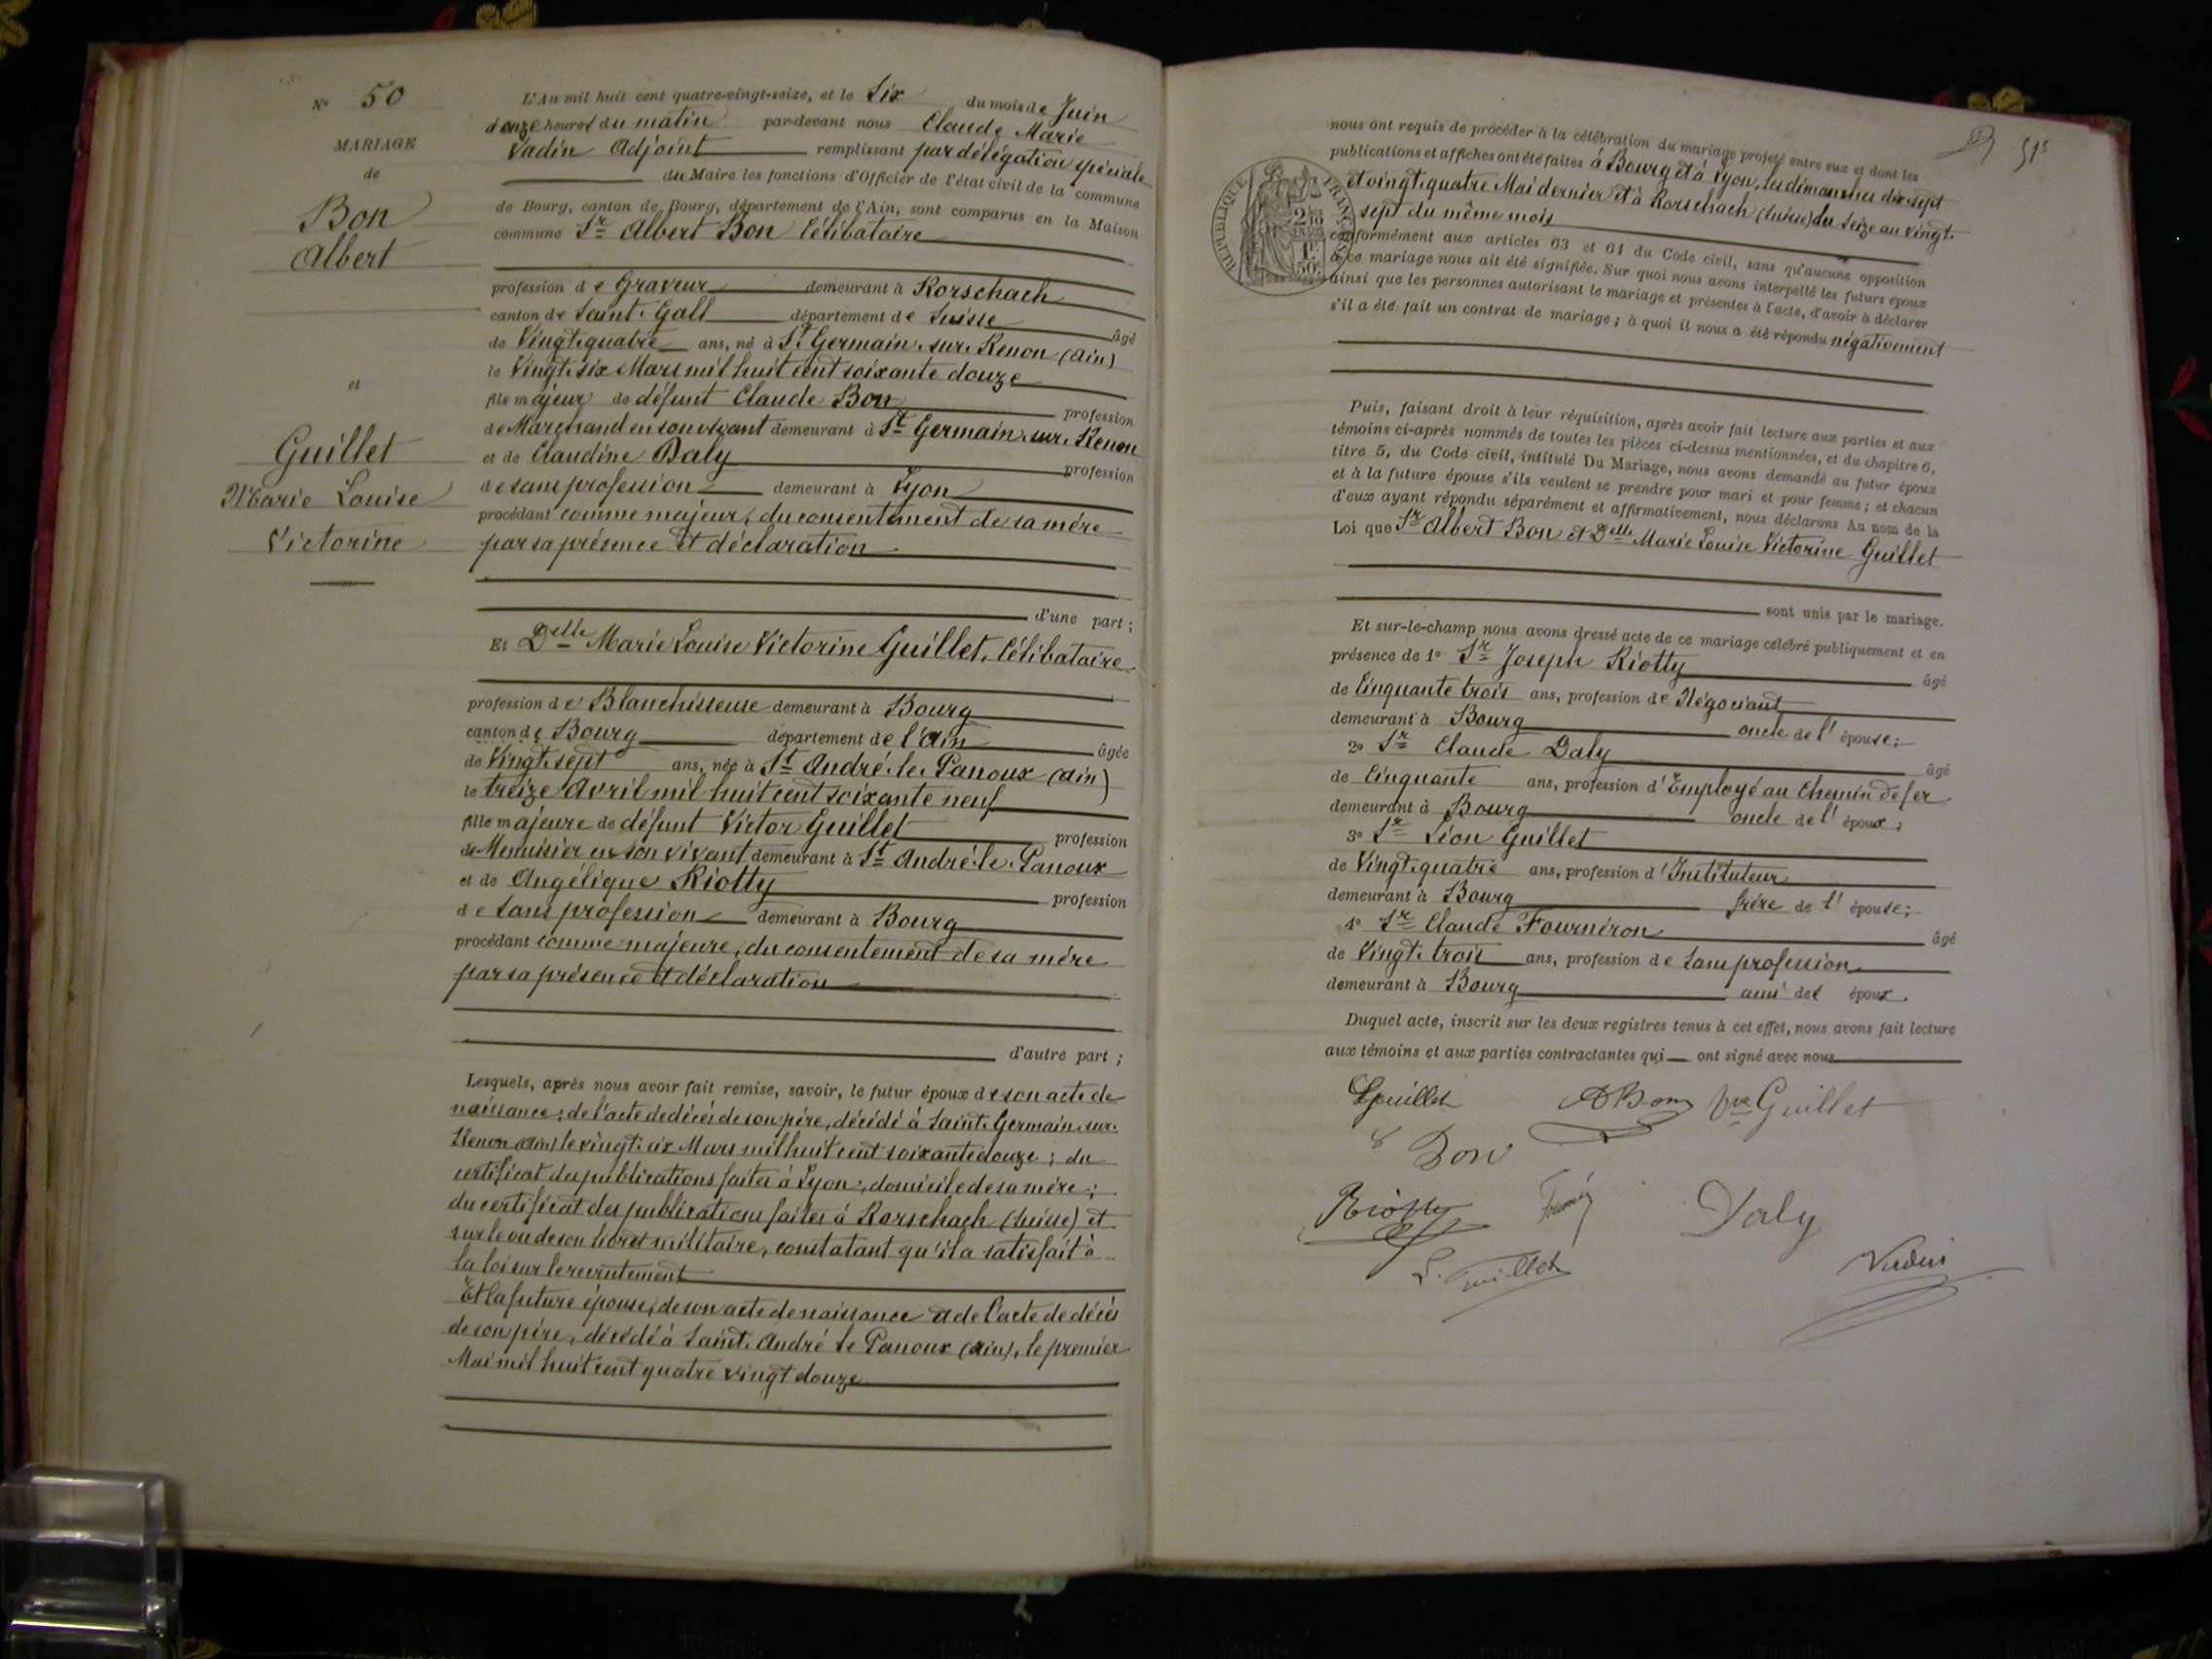 N° 50
MARIAGE
de
Bon
Albert
et
Guillet
Marie Louise
Victorine
L'An mil huit cent quatre-vingt-seize, et le Six du mois de Juin
à onze heures du matin par-devant nous Claude Marie
Vadin Adjoint remplissant par délégation spéciale
du Maire les fonctions d'Officier de l'état civil de la commune
de Bourg, canton de Bourg, département de l'Ain, sont comparus en la Maison
commune Sr Albert Bon Célibataire
profession de Graveur demeurant à Rorschach
canton de Saint-Gall département de Suisse âgé
de Vingt-quatre ans, né à St Germain-sur-Renon (Ain)
le Vingt-six Mars mil huit cent soixante douze
fils majeur de défunt Claude Bon profession
de Marchand en son vivant demeurant à St Germain-sur-Renon
et de Claudine Daly profession
de sans profession demeurant à Lyon
procédant comme majeur, du consentement de sa mère
par sa présence et déclaration
d'une part ;
Et Delle Marie Louise Victorine Guillet, Célibataire
profession de Blanchisseuse demeurant à Bourg
canton de Bourg département de l'Ain âgée
de Vingt-sept ans, née à St André-le-Panoux (Ain)
le treize Avril mil huit cent soixante neuf
fille majeure de défunt Victor Guillet profession
de Menuisier en son vivant demeurant à St André-le-Panoux
et de Angélique Riotty profession
de sans profession demeurant à Bourg
procédant comme majeure, du consentement de sa mère
par sa présence et déclaration
d'autre part ;
Lesquels, après nous avoir fait remise, savoir, le futur époux de son acte de
naissance ; de l'acte de décès de son père, décédé à Saint-Germain-sur-
Renon (Ain) le vingt-six Mars mil huit cent soixante douze ; du
certificat des publications faites à Lyon, domicile de sa mère ;
du certificat des publications faites à Rorschach (Suisse) et
sur le vu de son livret militaire, constatant qu'il a satisfait à
la loi sur le recrutement
Et la future épouse, de son acte de naissance et de l'acte de décès
de son père, décédé à Saint-André le Panoux (Ain), le premier
Mai mil huit cent quatre vingt douze
515
nous ont requis de procéder à la célébration du mariage projeté entre eux et dont les
publications et affiches ont été faites à Bourg et à Lyon, les dimanches dix-sept
et vingt-quatre Mai dernier et à Rorschach (Suisse) du Seize au vingt-
sept du même mois
conformément aux articles 63 et 64 du Code civil, sans qu'aucune opposition
à ce mariage nous ait été signifiée. Sur quoi nous avons interpellé les futurs époux
ainsi que les personnes autorisant le mariage et présentes à l'acte, d'avoir à déclarer
s'il a été fait un contrat de mariage ; à quoi il nous a été répondu négativement
RÉPUBLIQUE FRANÇAISE
2/10
1F
50C
Puis, faisant droit à leur réquisition, après avoir fait lecture aux parties et aux
témoins ci-après nommés de toutes les pièces ci-dessus mentionnées, et du chapitre 6,
titre 5, du Code civil, intitulé Du Mariage, nous avons demandé au futur époux
et à la future épouse s'ils veulent se prendre pour mari et pour femme ; et chacun
d'eux ayant répondu séparément et affirmativement, nous déclarons Au nom de la
Loi que Sr Albert Bon et Delle Marie Louise Victorine Guillet
sont unis par le mariage.
Et sur-le-champ nous avons dressé acte de ce mariage célébré publiquement et en
présence de 1° Sr Joseph Riotty âgé
de Cinquante trois ans, profession de Négociant
demeurant à Bourg oncle de l'épouse ;
2° Sr Claude Daly âgé
de Cinquante ans, profession d'Employé au Chemin de fer
demeurant à Bourg oncle de l'époux ;
3° Sr Léon Guillet
de Vingt-quatre ans, profession d'Instituteur
demeurant à Bourg frère de l'épouse ;
4° Sr Claude Fournéron âgé
de Vingt-trois ans, profession de sans profession
demeurant à Bourg ami des époux.
Duquel acte, inscrit sur les deux registres tenus à cet effet, nous avons fait lecture
aux témoins et aux parties contractantes qui ont signé avec nous
Guillet ABon Vve Guillet
Bon
Riotty Daly
L. Guillet Vadin